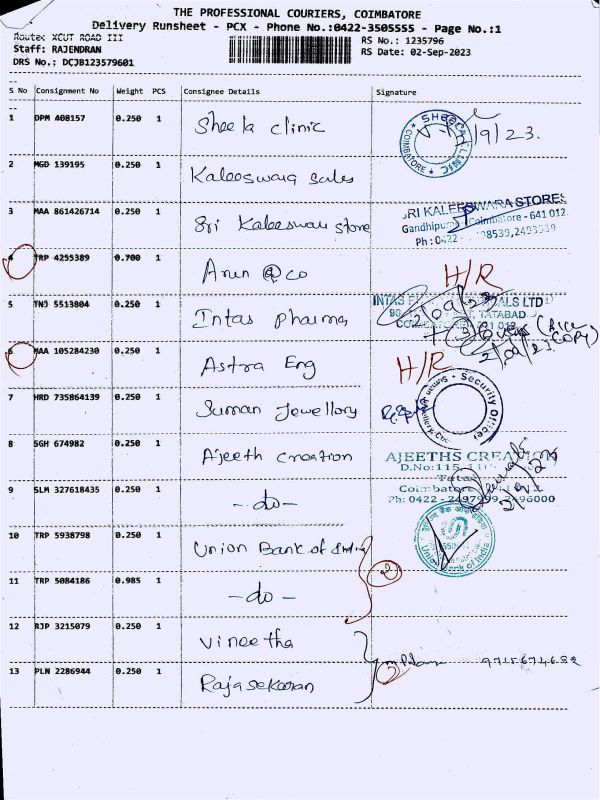 THE PROFESSIONAL COURIERS, COIMBATORE
Delivery Runsheet - PCX - Phone No.:0422-3505555 - Page No.:1
Route: XCUT ROAD III
Staff: RAJENDRAN
DRS No.: DCJB123579601
RS No.: 1235796
RS Date: 02-Sep-2023
S No Consignment No Weight PCS Consignee Details Signature
1 DPM 408157 0.250 1 Sheela clinic
COIMBATORE
9/23.
2 MGD 139195 0.250 1 Kaleeswara sales
3 MAA 861426714 0.250 1 Sri Kaleeswari store
SRI KALEESWARA STORES
Gandhipuram, Coimbatore - 641 012.
Ph : 0422 -
4 TRP 4255389 0.700 1 Arun @ co
H/R
5 TNJ 5513804 0.250 1 Intas pharma
INTAS
TATABAD
6 MAA 105284230 0.250 1 Astra Eng
H/R
7 HRD 735864139 0.250 1 Suman Jewellory
Security Officer
8 SGH 674982 0.250 1 Ajeeth creation
AJEETHS CREATION
D.No:115,
Coimbatore
Ph: 0422 - 2497999,
9 SLM 327618435 0.250 1 - do -
10 TRP 5938798 0.250 1 Union Bank of India
Union Bank of India
11 TRP 5084186 0.985 1 - do -
2
12 RJP 3215079 0.250 1 Vineetha
13 PLN 2286944 0.250 1 Rajasekaran